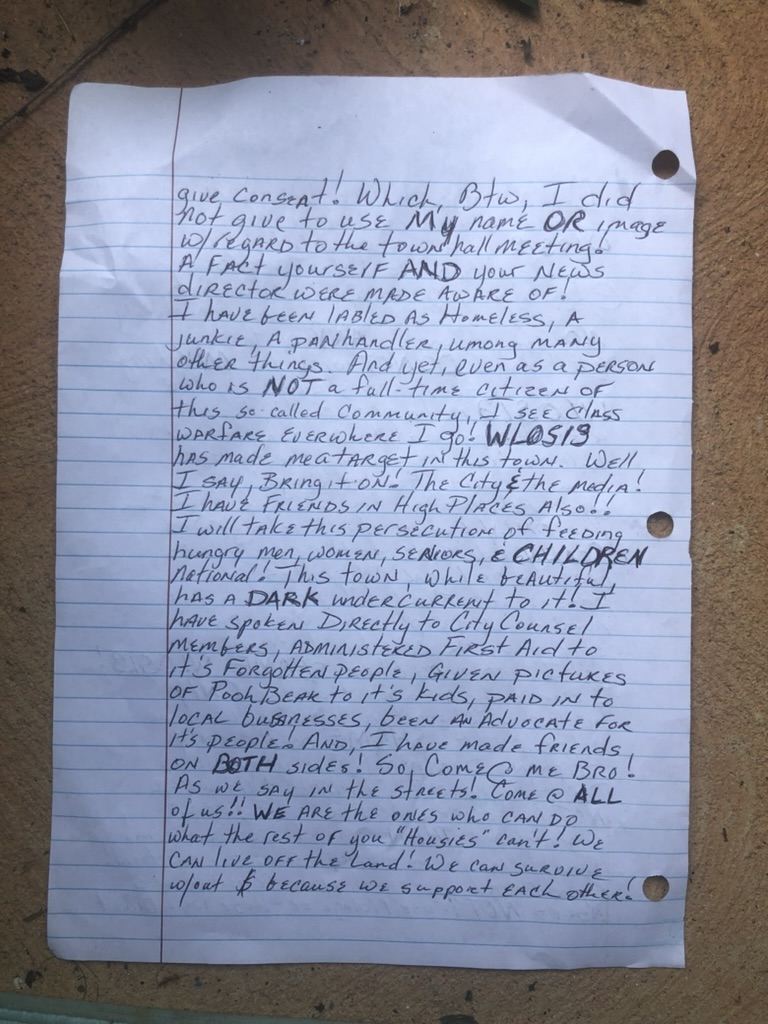 give consent! Which, Btw, I did
not give to use My name OR image
w/regard to the town hall meeting!
A FACT yourself AND your News
director were made aware of!
I have been labled as Homeless, A
junkie, A panhandler, umong many
other things. And yet, even as a person
who is NOT a full-time citizen of
this so-called community, I see class
warfare everwhere I go! WLOS13
has made me a target in this town. Well
I say, Bring it on! The City & the media!
I have Friends in High Places Also!!
I will take this persecution of feeding
hungry men, women, seniors, & CHILDREN
National! This town, while beautiful,
has a DARK undercurrent to it! I
have spoken Directly to City Counsel
members, administered First Aid to
it's Forgotten people, Given pictures
of Pooh Bear to it's kids, paid in to
local businesses, been an Advocate for
it's people! And, I have made friends
on BOTH sides! So, Come @ me Bro!
As we say in the streets! Come @ ALL
of us!! WE are the ones who can do
what the rest of you "Housies" can't! We
can live off the land! We can survive
w/out $ because we support each other!